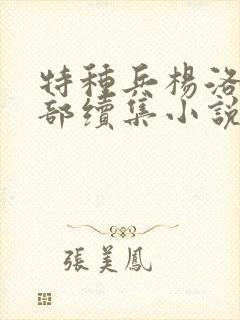 特種兵楊洛
部續集小說
張美鳳